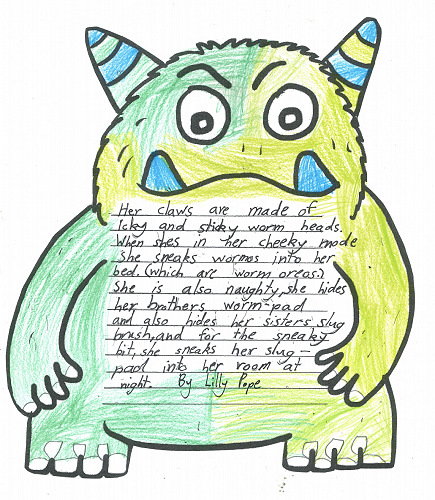 Her claws are made of
Icky and sticky worm heads.
When shes in her cheeky mode
she sneaks wormos into her
bed. (which are worm oreos.)
She is also naughty, she hides
her brothers worm-pad
and also hides her sisters slug
brush, and for the sneaky
bit, she sneaks her slug-
pad into her room at
night. By Lilly Pope